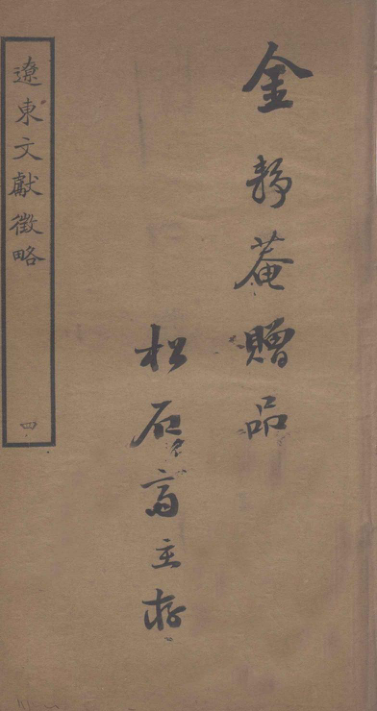 金静菴贈品
松石斋主存
遼東文獻徵略
四